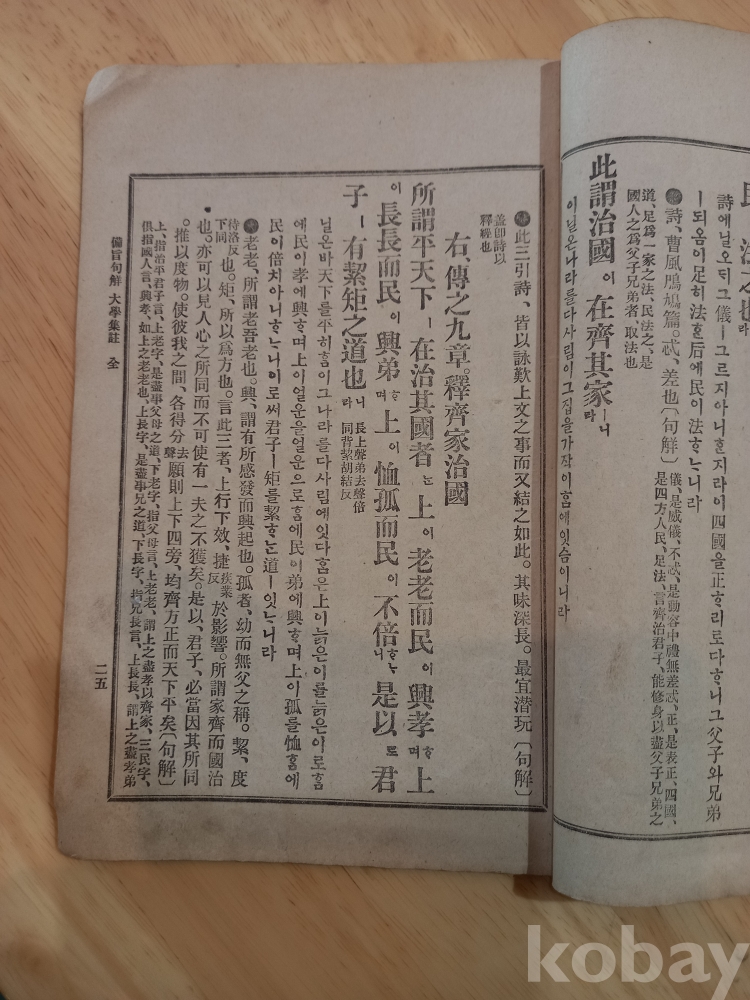 詩에닐오ᄃᆡ그儀ㅣ그르지아니ᄒᆞᆫ지라이四國을正ᄒᆞ리로다ᄒᆞ니그父子와兄弟
ㅣ되옴이足히法ᄒᆞᆫ后에民이法ᄒᆞᄂᆞ니라
詩、曹風鳲鳩篇。忒、差也〔句解〕儀、是威儀、不忒、是動容中禮無差忒、正、是表正、四國、
是四方人民、足法、言齊治君子、能修身以盡父子兄弟之
道、足爲一家之法、民法之、是
國人之爲父子兄弟者 取法也
此謂治國이在齊其家ㅣ니라
이닐온나라를다사림이그집을가작이홈에잇슴이니라
此三引詩、皆以詠歎上文之事而又結之如此。其味深長。最宜潛玩〔句解〕
蓋卽詩以
釋經也
右、傳之九章。釋齊家治國
所謂平天下ㅣ在治其國者ᄂᆞᆫ上이老老而民이興孝ᄒᆞ며上
이長長而民이興弟ᄒᆞ며上이恤孤而民이不倍ᄒᆞᄂᆞ니是以로君
子ㅣ有絜矩之道也ㅣ니라 長上聲弟去聲倍
同背絜胡結反
닐온바天下를平히홈이그나라를다사림에잇다홈은上이늙은이를늙은이로홈
에民이孝에興ᄒᆞ며上이얼운을얼운으로홈에民이弟에興ᄒᆞ며上이孤를恤홈에
民이倍치아니ᄒᆞᄂᆞ니이로써君子ㅣ矩를絜ᄒᆞᄂᆞᆫ道ㅣ잇ᄂᆞ니라
老老、所謂老吾老也。興、謂有所感發而興起也。孤者、幼而無父之稱。絜、度
待洛反
下同也。矩、所以爲方也。言此三者、上行下效、捷疾業
反於影響。所謂家齊而國治
也。亦可以見人心之所同而不可使有一夫之不獲矣。是以、君子、必當因其所同
。推以度物。使彼我之間、各得分去
聲願則上下四旁、均齊方正而天下平矣〔句解〕
上、指治平君子言、上老字、是盡事父母之道、下老字、指父母言、上老老、謂上之盡孝以齊家、三民字、
俱指國人言、興孝、如上之老老也、上長字、是盡事兄之道、下長字、指兄長言、上長長、謂上之盡孝弟
備旨句解 大學集註 全
二五
kobay